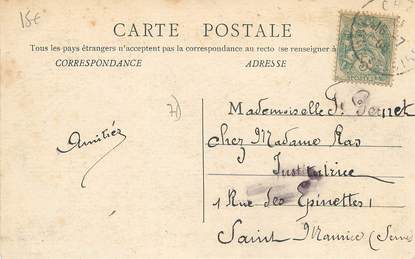 15€
CARTE POSTALE
Tous les pays étrangers n'acceptent pas la correspondance au recto (se renseigner à
CORRESPONDANCE
ADRESSE
7)
Amitiés
Mademoiselle
Chez Madame Ras
Institutrice
1 Rue des Epinettes 1
Saint Maurice (Seine